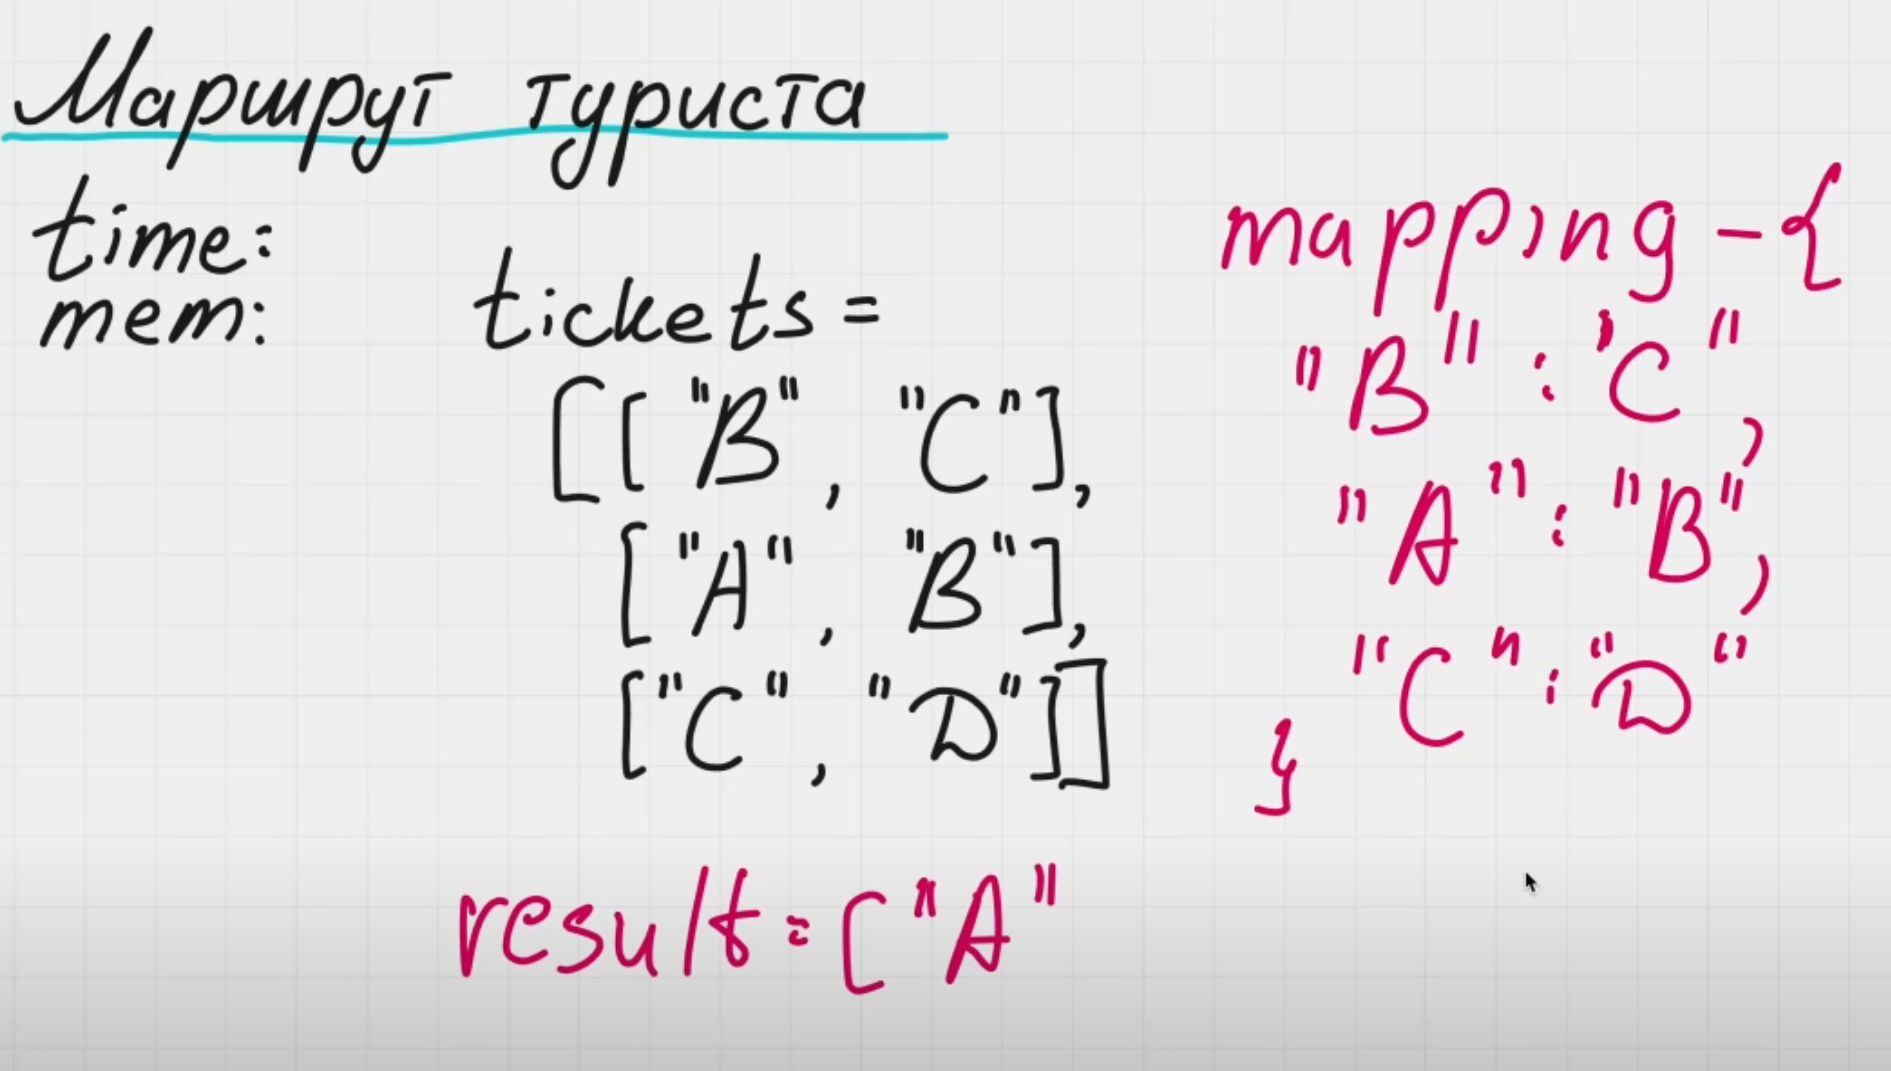 Маршрут туриста
time:
mem:
tickets =
[["B", "C"],
["A", "B"],
["C", "D"]]
mapping - {
"B" : "C",
"A" : "B",
"C" : "D"
}
result = ["A"